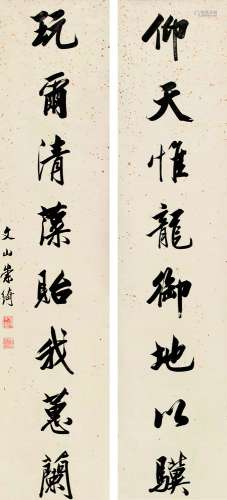 仰天惟龍御地以驥
玩爾清藻貽我蕙蘭
文山崇綺